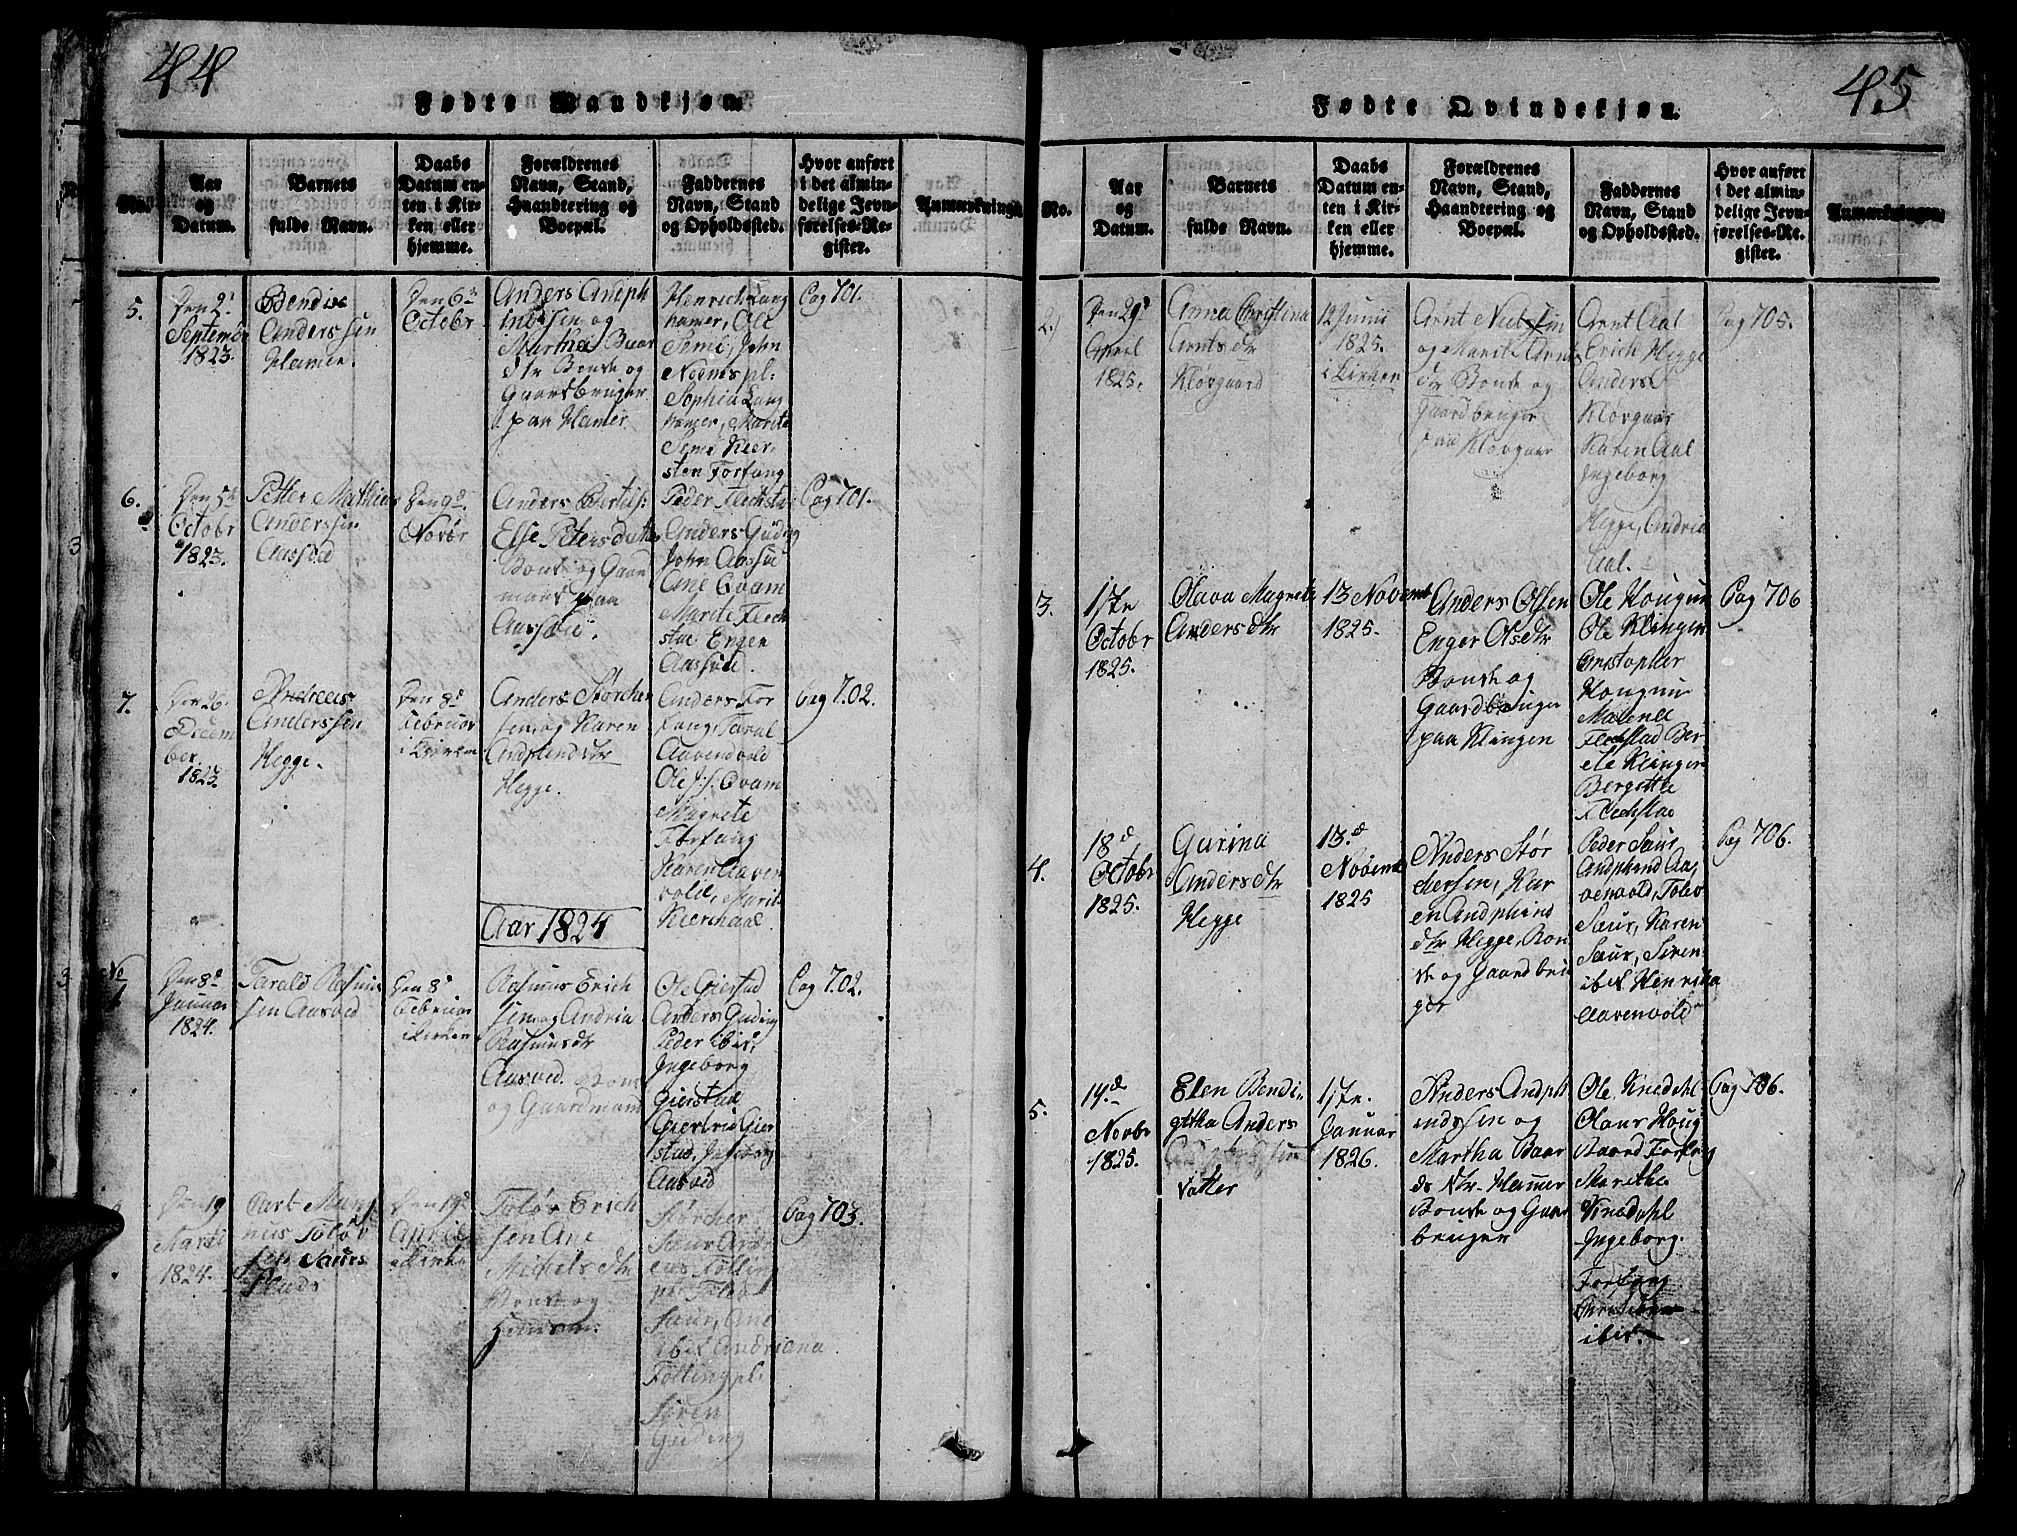 44
Fødte Mandkjøn
No.
Aar
og
Datum.
Barnets
fulde Navn.
Daabs
Datum en-
ten i Kir-
ken eller
hjemme.
Forældrenes
Navn, Stand,
Haandtering og
Boepæl.
Faddernes
Navn, Stand
og Opholdssted.
Hvor anført
i det almin-
delige Jevn-
førelses-Re-
gister.
Anmærkninge
5.
Den 2d
Septembr
1823.
Bendix
Anderssen
Hamer.
Den 6
Octobr
Anders Andph
indssen og
Martha Baar
dtr Bonde og
Gaardbruger
paa Hamer
Henrich Lang
hamer, Ole
Semi, John
Noemspl:
Sophia Lang
hamer, Marite
Semi Kier-
sten Forfang
Pag 701.
6.
Den 5te
Octobr
1823.
Petter Mathias
Anderssen
Aassæd
Den 9d
Novbr
Anders Bertels:
Else Petersdatter
Bonde og Gaard
mand paa
Aassæd.
Peder Flechstad
Anders Guding
John Aassæd
Ane Qvam
Marite Flech
stad Enger
Aassæd.
Pag 701.
7.
Den 26
Decem
ber.
1823.
Andreas
Anderssen
Hegge.
Den 8d
Februar
i Kirken
Anders Størcher
sen og Karen
Andphinddtr
Hegge.
Anders For
fang, Taral
Aavendvold
Ole J:s: Qvam
Magrete
Forfang
Karen Aaven
vold, Marit
Kierhaal.
Pag 702.
Aar 1824
No
1
Den 8d
Januar
1824.
Tarald Rasmus
sen Aasved
Den 8d
Februar
i Kirken
Rasmus Erich
sen og Andria
Rasmusdtr
Aasved. Bonde
og Gaardmand
Ole Gierstad
Anders Guding
Peder ibid,
Ingeborg
Gierstad
Giertrud Gier
stad, Ingeborg
Aasved
Pag 702.
Den 19
Marti
1824.
Carl Mag
nus Toløv
sen Saurs
Plads
Den 19d
April
i Kirke
Toløv Erich
sen Ane
Michelsdtr
Bonde og
Huusm.
Størcher
Saur Andr
eas Følling
pl: Toløv
Saur, Ane
ibid Andriana
Føllingpl:
Siren
Guding
Pag 703.
45
Fødte Qvindekjøn.
No.
Aar
og
Datum.
Barnets
fulde Navn.
Daabs
Datum en-
ten i Kir-
ken eller
hjemme.
Forældrenes
Navn, Stand,
Haandtering og
Boepæl.
Faddernes
Navn, Stand
og Opholdssted.
Hvor anført
i det almin-
delige Jevn-
førelses-Re-
gister.
Anmærkninger.
2.
Den 29d
April
1825.
Anna Christina
Arntsdtr
Kløvgaard
12 Junii
1825.
i Kirken
Arnt Nielssen
og Marit Arnts
dtr Bonde og
Gaardbruger
paa Kløvgaar
Arnt Aal
Erich Hegge
Anders
Kløvgaar
Karen Aal
Ingeborg
Hegge, Andria
Aal.
Pag 705.
3.
17te
Octobr
1825.
Olava Magrete
Andersdtr
13 Novemb
1825.
Anders Olsen
Enger Olsdtr
Bonde og
Gaardbruger
paa Klingen
Ole Hougum
Ole Klingen
Christopher
Hougum
Malene
Flechstad Ber
ele Klingen
Bergette
Flechstad
Pag 706
4.
18d
Octobr
1825.
Gurina
Andersdtr
Hegge
13d
Novemb
1825
Anders Stør
chersen, Kar
en Andphind
dtr Hegge, Bon
de og Gaardbru
ger
Peder Saur,
Andphind Aa,
venvold, Toløv
Saur, Karen
Saur, Siren
ibid Henricha
Aavenvold
Pag 706.
5.
19d
Novbr
1825.
Elen Bendi,
githa Anders
datter
17te
Januar
1826.
Anders Andph
indssen og
Martha Baar
ds dtr. Hammer
Bonde og Gaard
bruger
Ole Vinedahl
Olaus Houg
Baard Forfang
Marithe
Vinedahl
Ingeborg
Forfang
ibid.
Pag 706.